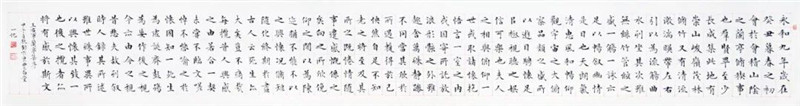 永和九年歲在
癸丑暮春之初
會于會稽山陰
之蘭亭脩禊事
也羣賢畢至少
長咸集此地有
崇山峻嶺茂林
脩竹又有清流
激湍暎帶左右
引以為流觴曲
水列坐其次雖
無絲竹管弦之
盛一觴一詠亦
足以暢敘幽情
是日也天朗氣
清惠風和暢仰
觀宇宙之大俯
察品類之盛所
以遊目騁懷足
以極視聽之娛
信可樂也夫人
之相與俯仰一
世或取諸懷抱
悟言一室之內
或因寄所託放
浪形骸之外雖
趣舍萬殊靜躁
不同當其欣於
所遇暫得於己
快然自足不知
老之將至及其
所之既惓情隨
事遷感慨係之
矣向之所欣俛
仰之間以為陳
迹猶不能不以
之興懷況脩短
隨化終期於盡
古人云死生亦
大矣豈不痛哉
每攬昔人興感
之由若合一契
未嘗不臨文嗟
悼不能喻之於
懷固知一死生
為虛誕齊彭殤
為妄作後之視
今亦由今之視
昔悲夫故列敘
時人錄其所述
雖世殊事異所
以興懷其致一
也後之攬者亦
將有感於斯文